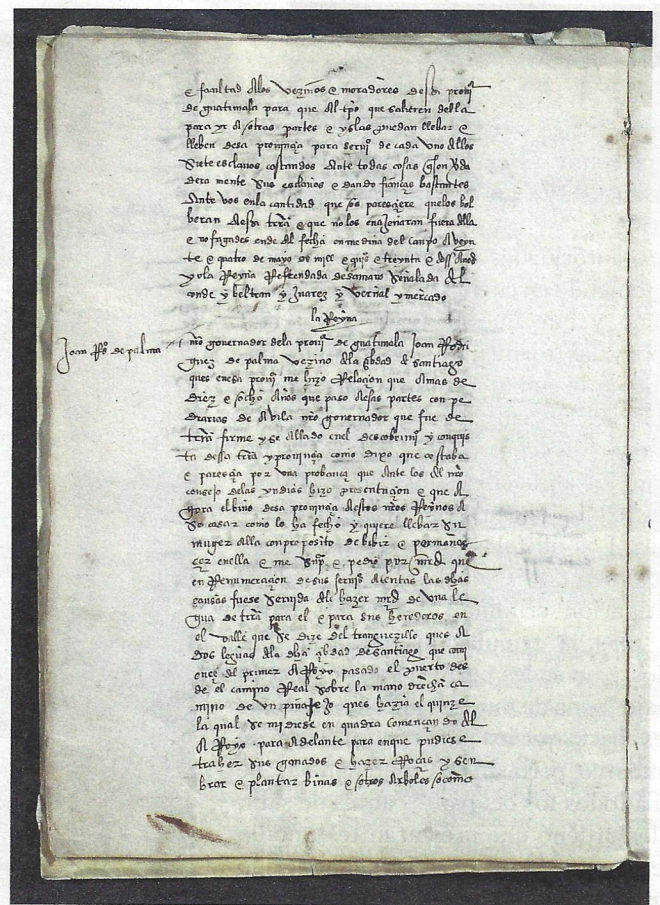 e facultad a los vezinos e moradores desa provi
de guatimala para que al tpo que salieren della
para yr a otras partes e yslas puedan llebar e
lleben desa provinçia para servi de cada uno dellos
siete esclavos costandos ante todas cosas q son vda
dera mente sus esclavos e dando fianças bastantes
ante vos en la cantidad que os paresçiere que los bol
beran a esa trra e que no los enajenaran fuera della
e no fagades ende al fecha en medina del canpo a veyn
te e quatro de mayo de mill e quis e treynta e dos años
yo la Reyna Refrendada de samano señalada del
conde y beltran y xuarez y vernal y mercado
la Reyna
Joan Ros de palma
nro governador dela provi de guatimala Joan Rodri
guez de palma vezino dela çibdad de santiago
ques en esa provi me hizo Relaçion que a mas de
diez e ocho años que paso a esas partes con pe
drarias de avila nro governador que fue de
trra firme y se allado en el descobrimi y conquis
ta dessa trra y provinçia como dixo que costaba
e paresçia por una probança que ante los del nro
consejo delas yndias hizo presentaçion e que a
gora el bino desa provinçia a estos nros Reynos a
se casar como lo ha fecho y quiere llebar su
muger alla con proposito de bibir e permanes
çer en ella e me supco e pedio por mrd que
en Renumeraçion de sus serviçs atentas las dhas
causas fuese servida de le hazer mrd de una le
gua de trra para el e para sus herederos en
el valle que se dize del tianguezillo ques a
dos leguas dela dha çibdad de santiago que comi
ençe del primer aRoyo pasado el puerto des
de el camino Real sobre la mano drecha ca
mino de un pinalejo ques hazia el
la qual se midiese en quadra començando del
aRoyo para adelante para en que pudiese
traher sus ganados e hazer Roças y sen
brar e plantar binas e otros arboles o como